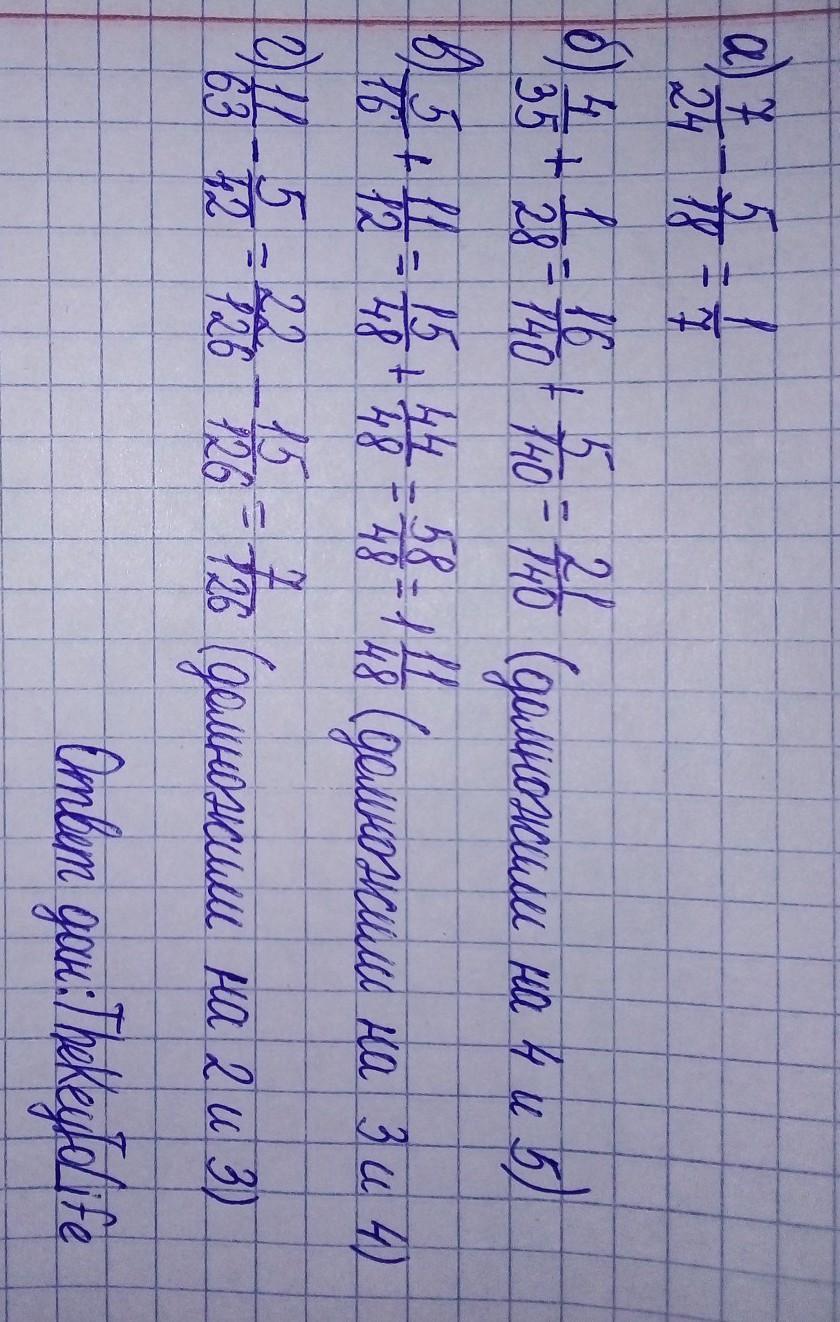 а) 7/24 - 5/18 = 1/7
б) 4/35 + 1/28 = 16/140 + 5/140 = 21/140 (домножили на 4 и 5)
в) 5/16 + 11/12 = 15/48 + 44/48 = 58/48 = 1 11/48 (домножили на 3 и 4)
г) 11/63 - 5/42 = 22/126 - 15/126 = 7/126 (домножили на 2 и 3)
Ответ дан: TheKeyToLife